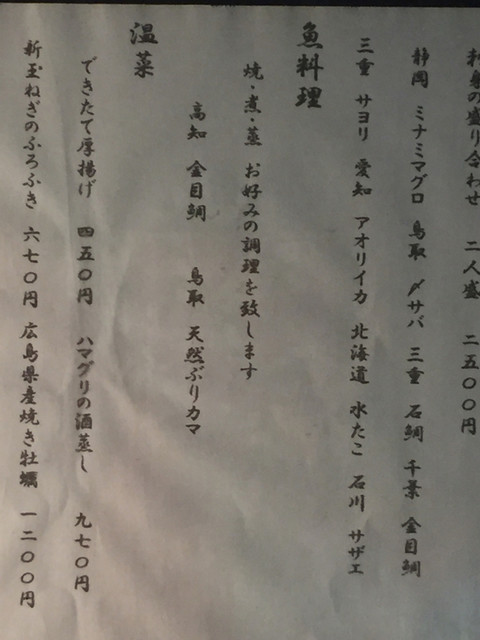 刺身の盛り合わせ 二人盛 二五〇〇円
静岡 ミナミマグロ 鳥取 〆サバ 三重 石鯛 千葉 金目鯛
三重 サヨリ 愛知 アオリイカ 北海道 水たこ 石川 サザエ
魚料理
焼・煮・蒸 お好みの調理を致します
高知 金目鯛 鳥取 天然ぶりカマ
温菜
できたて厚揚げ 四五〇円 ハマグリの酒蒸し 九七〇円
新玉ねぎのふろふき 六七〇円 広島県産焼き牡蠣 一二〇〇円